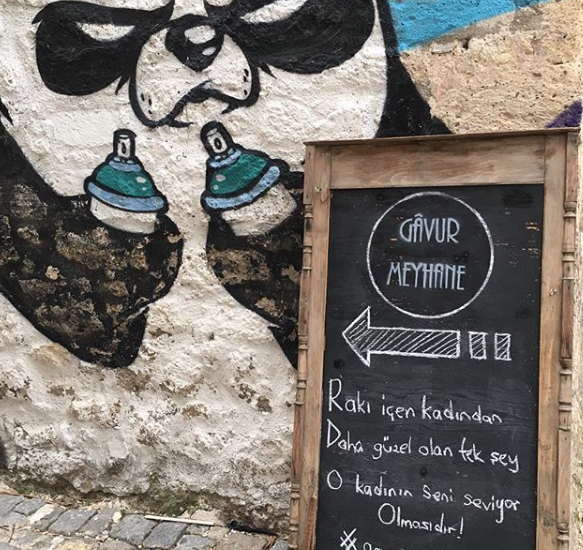 GÂVUR
MEYHANE
Rakı içen kadından
Daha güzel olan tek şey
O kadının seni seviyor
Olmasıdır!